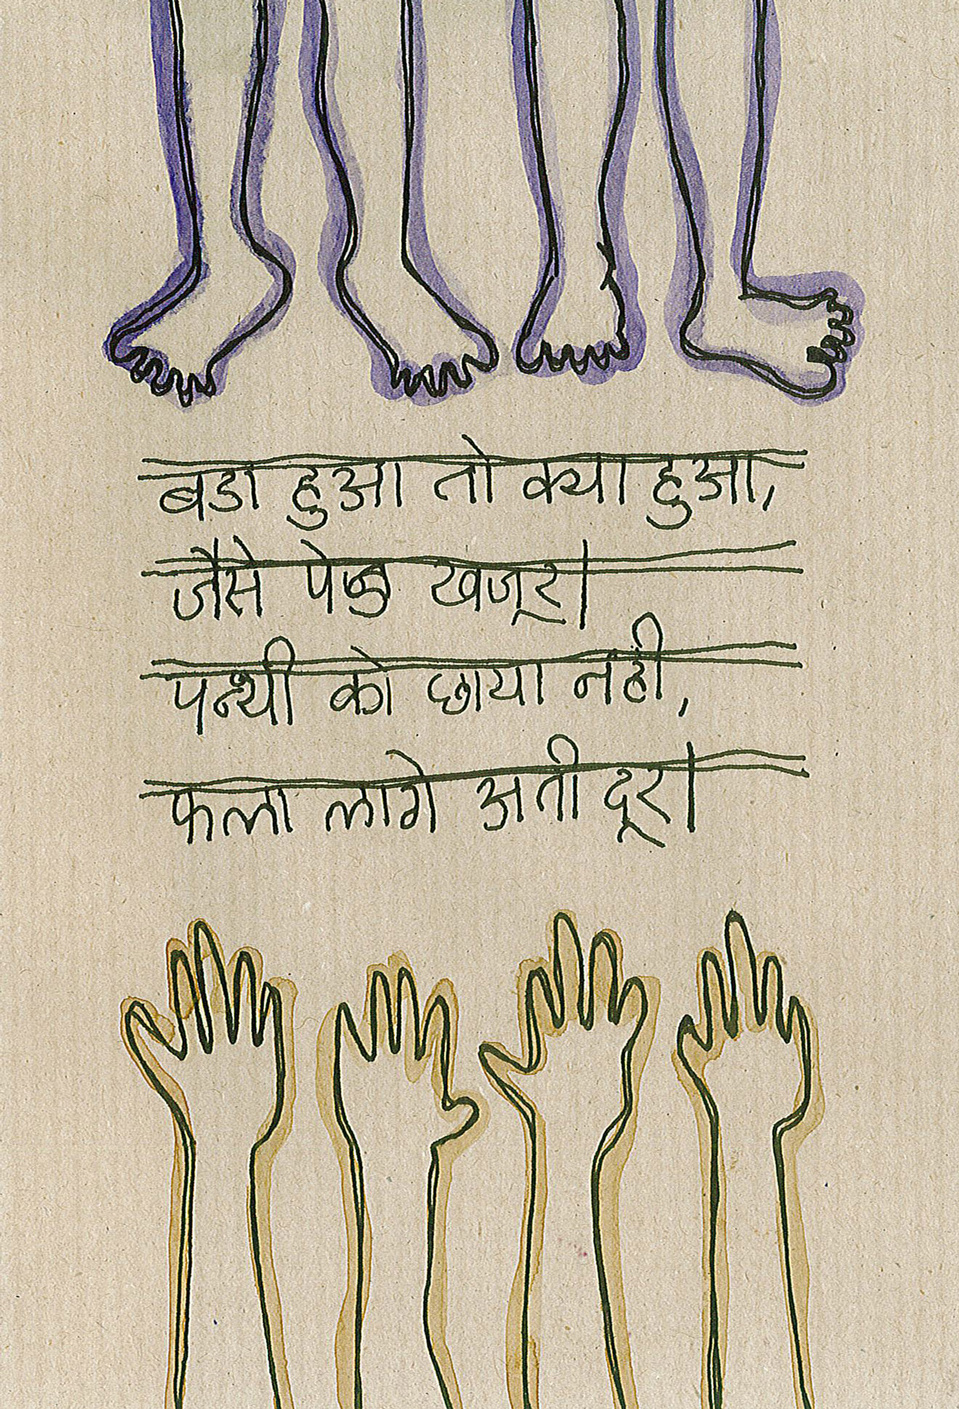 बडा हुआ तो क्या हुआ,
जैसे पेड खजूर।
पन्थी को छाया नही,
फल लागे अती दूर।